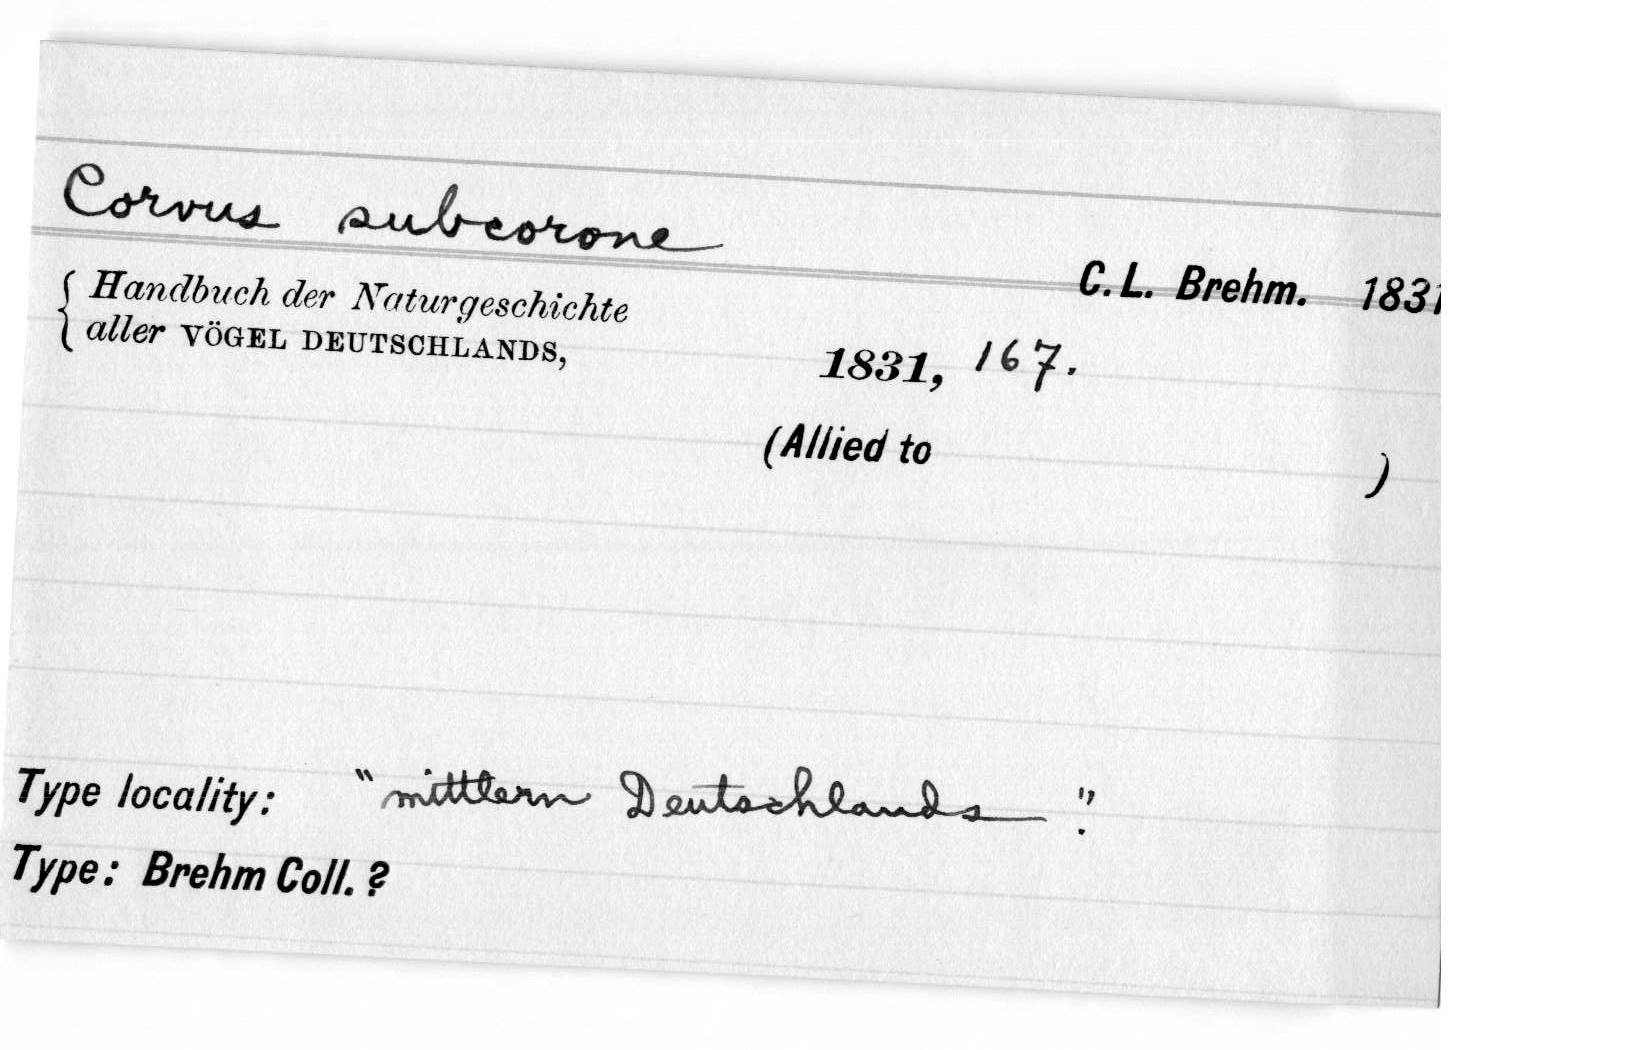 Corvus subcorone
C.L. Brehm. 1831
Handbuch der Naturgeschichte
aller VÖGEL DEUTSCHLANDS,
1831, 167.
(Allied to )
Type locality: "mittlern Deutschlands."
Type: Brehm Coll.?